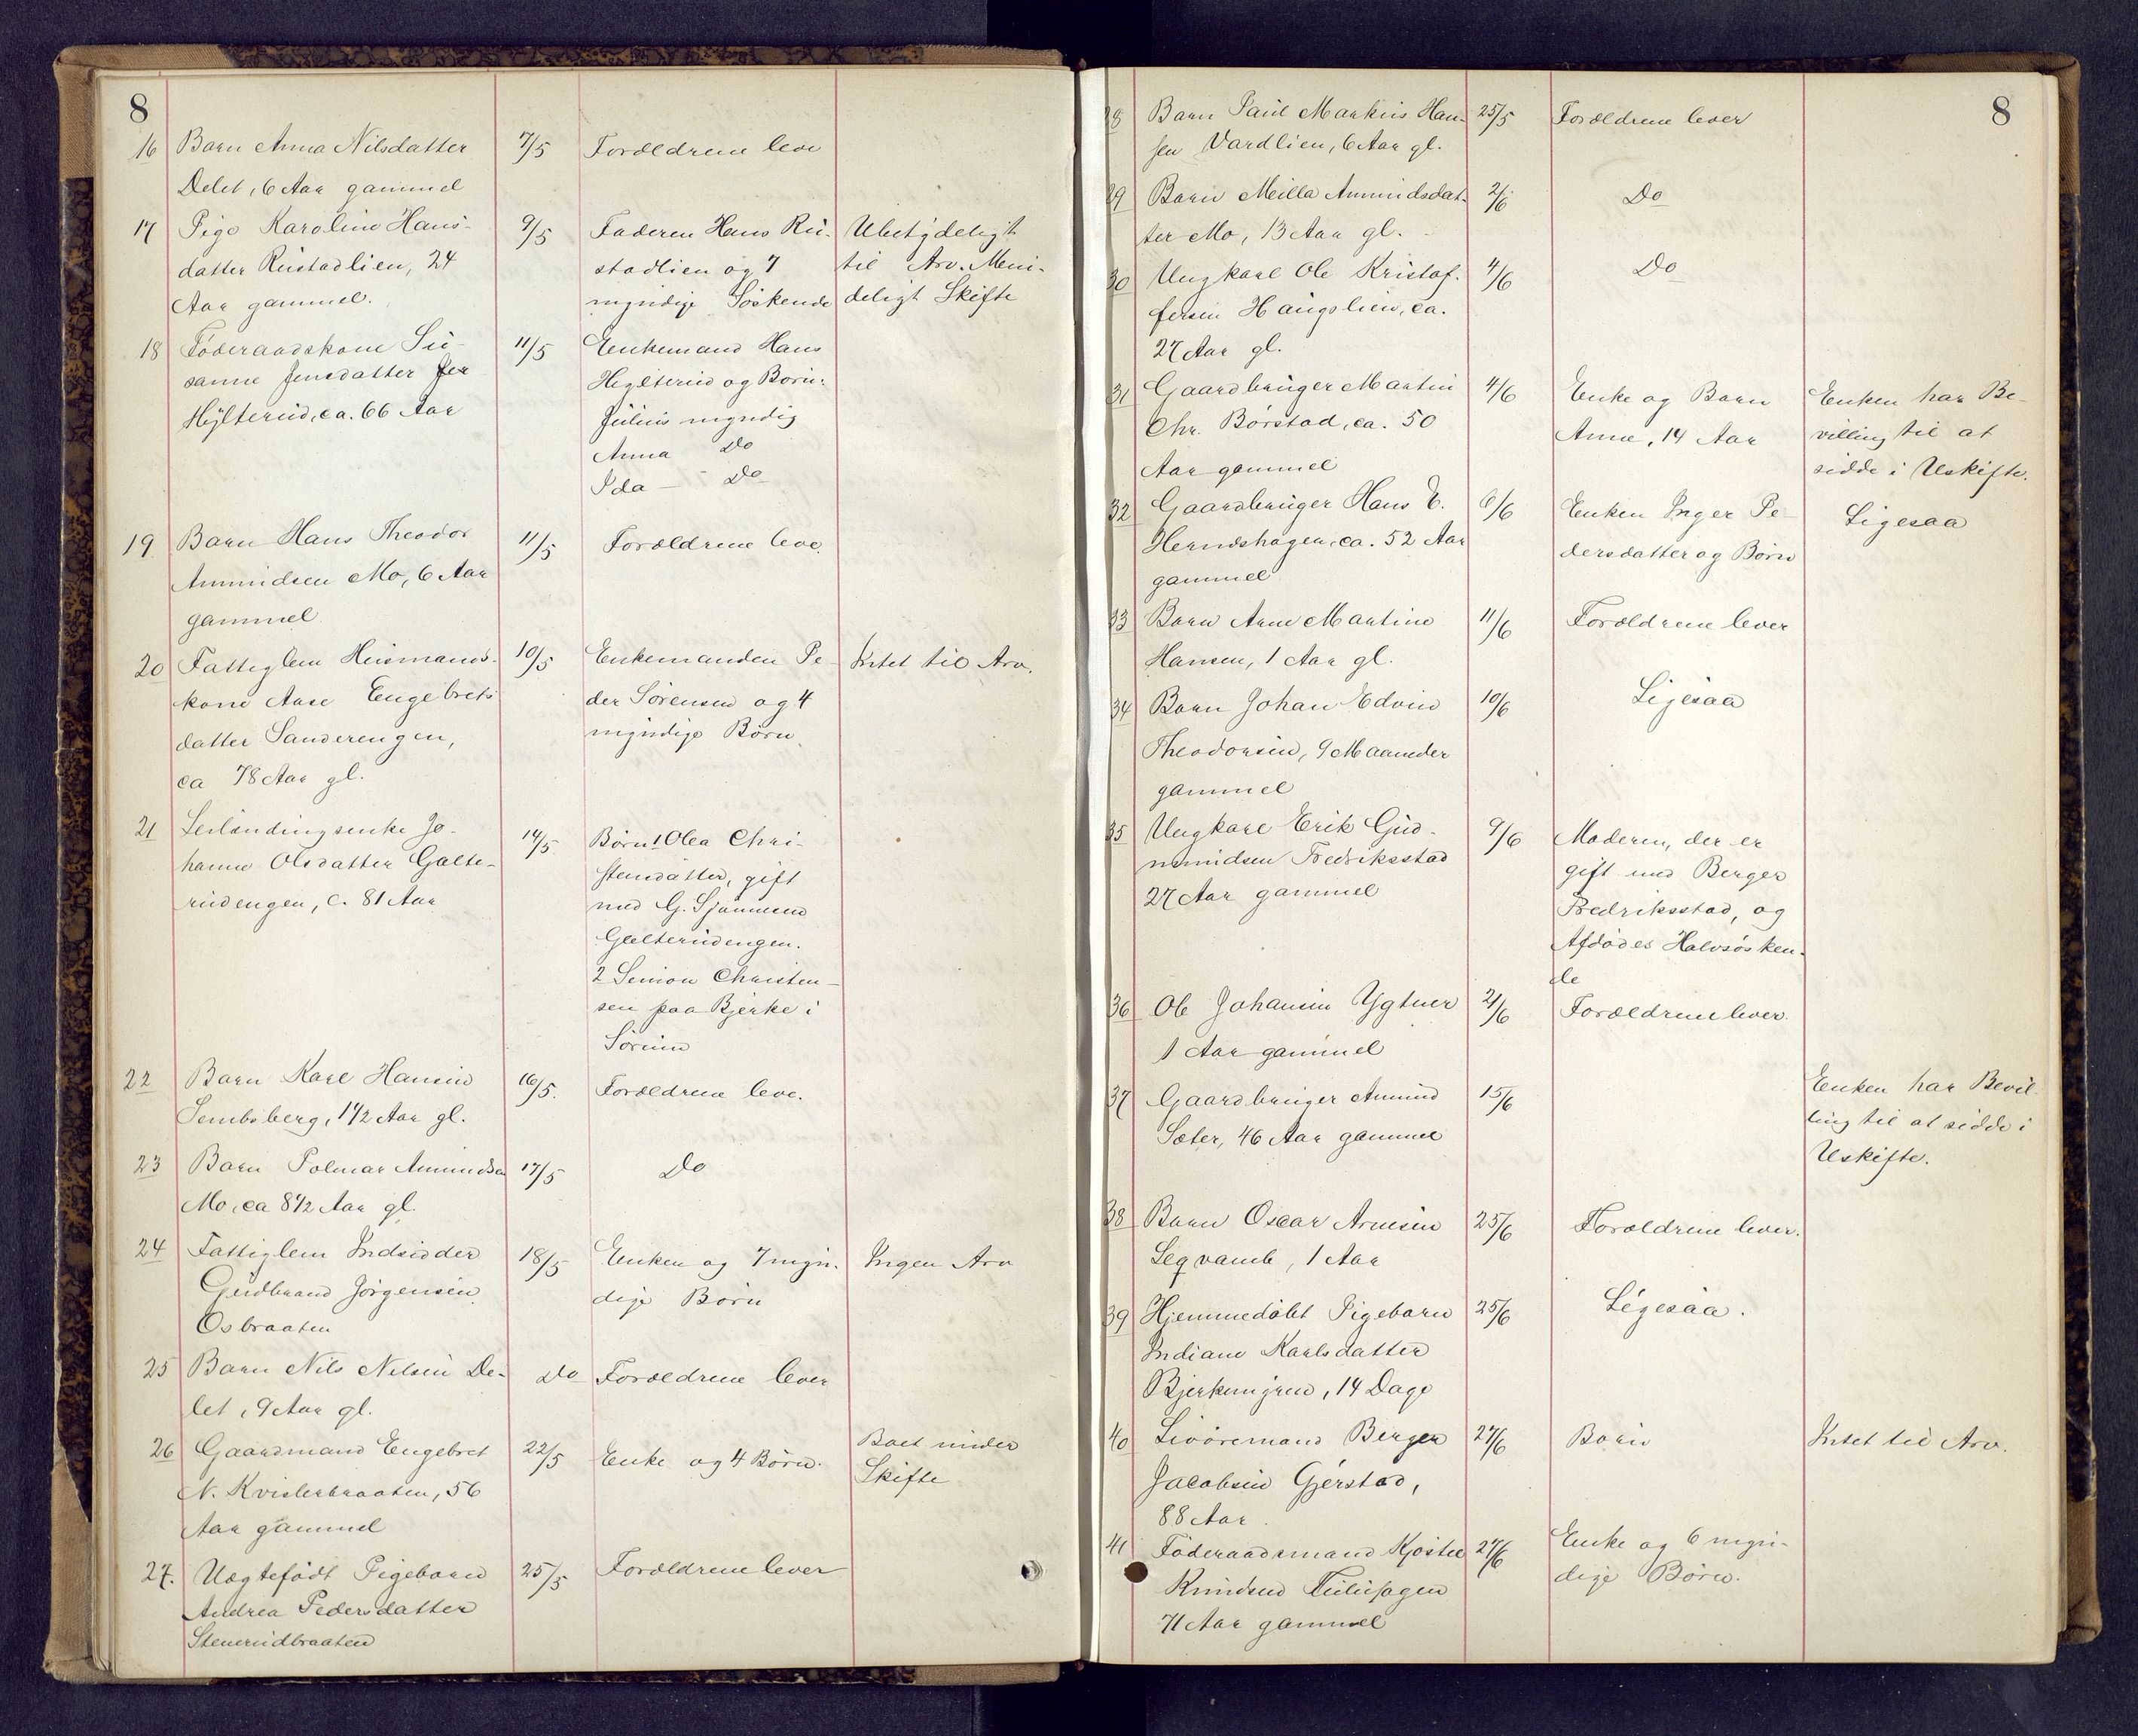 8
16 Barn Anna Nilsdatter 7/5 Forældrene leve
Delet, 6 Aar gammel
17 Pige Karoline Hans- 9/5 Faderen Hans Ru- Ubetydeligt
datter Rustadlien, 24 stadlien og 7 til Arv. Min-
Aar gammel. myndige Söskende deligt Skifte
18 Föderaadskone Su- 11/5 Enkemand Hans
sanne Jensdatter Hylterud og Born:
Hylterud, ca. 66 Aar Julius myndig
Anna Do
Ida — Do
19 Barn Hans Theodor 11/5 Forældrene leve.
Amundsen Mo, 6 Aar
gammel
20 Fattiglem Husmands- 10/5 Enkemanden Pe- Intet til Arv.
kone Aase Engebrets der Sörensen og 4
datter Sanderengen, myndige Börn
ca 78 Aar gl.
21 Leilændingsenke Jo- 14/5 Börn 1 Olea Chri-
hanne Olsdatter Galte- stensdatter, gift
rudengen, c. 81 Aar med G.
Galterudengen.
2 Simon Christen-
sen paa Bjerke i
Sörum
22 Barn Karl Hansen 16/5. Forældrene leve.
Sembsberg, 1 1/2 Aar gl.
23 Barn Polmar Amundsen 17/5 Do
Mo, ca 8 1/2 Aar gl.
24 Fattiglem Indsidder 18/5 Enken og 7 myn- Ingen Arv
Gudbrand Jörgensen dige Börn
Osbraaten
25 Barn Nils Nilsen De- Do Forældrene lever
let, 9 Aar gl.
26 Gaardmand Engebret 22/5 Enke og 4 Börn. Boet under
N. Kvislerbraaten, 56 Skifte
Aar gammel
27. Uægtefödt Pigebarn 25/5 Forældrene lever
Andrea Pedersdatter
Stenerudbraaten
8
28 Barn Paul Markus Han- 25/5 Forældrene lever
sen Vardlien, 6 Aar gl.
29 Barn Milla Amundsdat- 2/6 Do
ter Mo, 13 Aar gl.
30 Ungkarl Ole Kristof- 4/6 Do
fersen Haugslien, ca.
27 Aar gl.
31 Gaardbruger Martin 4/6 Enke og Barn Enken har Be-
Chr. Börstad, ca. 50 Anna, 14 Aar villing til at
Aar gammel sidde i Uskifte.
32 Gaardbruger Hans E. 6/6 Enken Inger Pe- Ligesaa
Herndshagen, ca. 52 Aar dersdatter og Börn
gammel
33 Barn Arne Martin 11/6 Forældrene lever
Hansen, 1 Aar gl.
34 Barn Johan Edvin 10/6 Ligesaa
Theodorsen, 9 Maaneder
gammel
35 Ungkarl Erik Gud- 9/6 Moderen, der er
mundsen Fredriksstad gift med Berger
27 Aar gammel Fredriksstad, og
Afdödes Halvsösken-
de
36 Ole Johansen Ygtner 2/6 Forældrene lever.
1 Aar gammel
37 Gaardbruger Amund 15/6 Enken har Bevil
Sæter, 46 Aar gammel ling til at sidde i
Uskifte.
38 Barn Oscar Arnesen 25/6 Forældrene lever.
Legvamb, 1 Aar
39 Hjemmedöbt Pigebarn 25/6 Ligesaa.
Indiane Karlsdatter
Bjerkemyren, 14 Dage
40 Livöremand Berger 27/6 Börn Intet til Arv.
Jacobsen Gjerstad,
88 Aar
41 Föderaadsmand Kjöstel 27/6 Enke og 6 myn-
Knudsen dige Börn.
71 Aar gammel